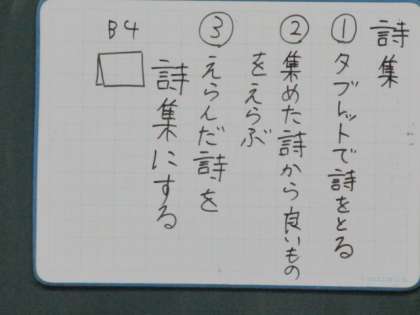 詩集
①タブレットで詩をとる
②集めた詩から良いもの
をえらぶ
③えらんだ詩を
詩集にする
B4